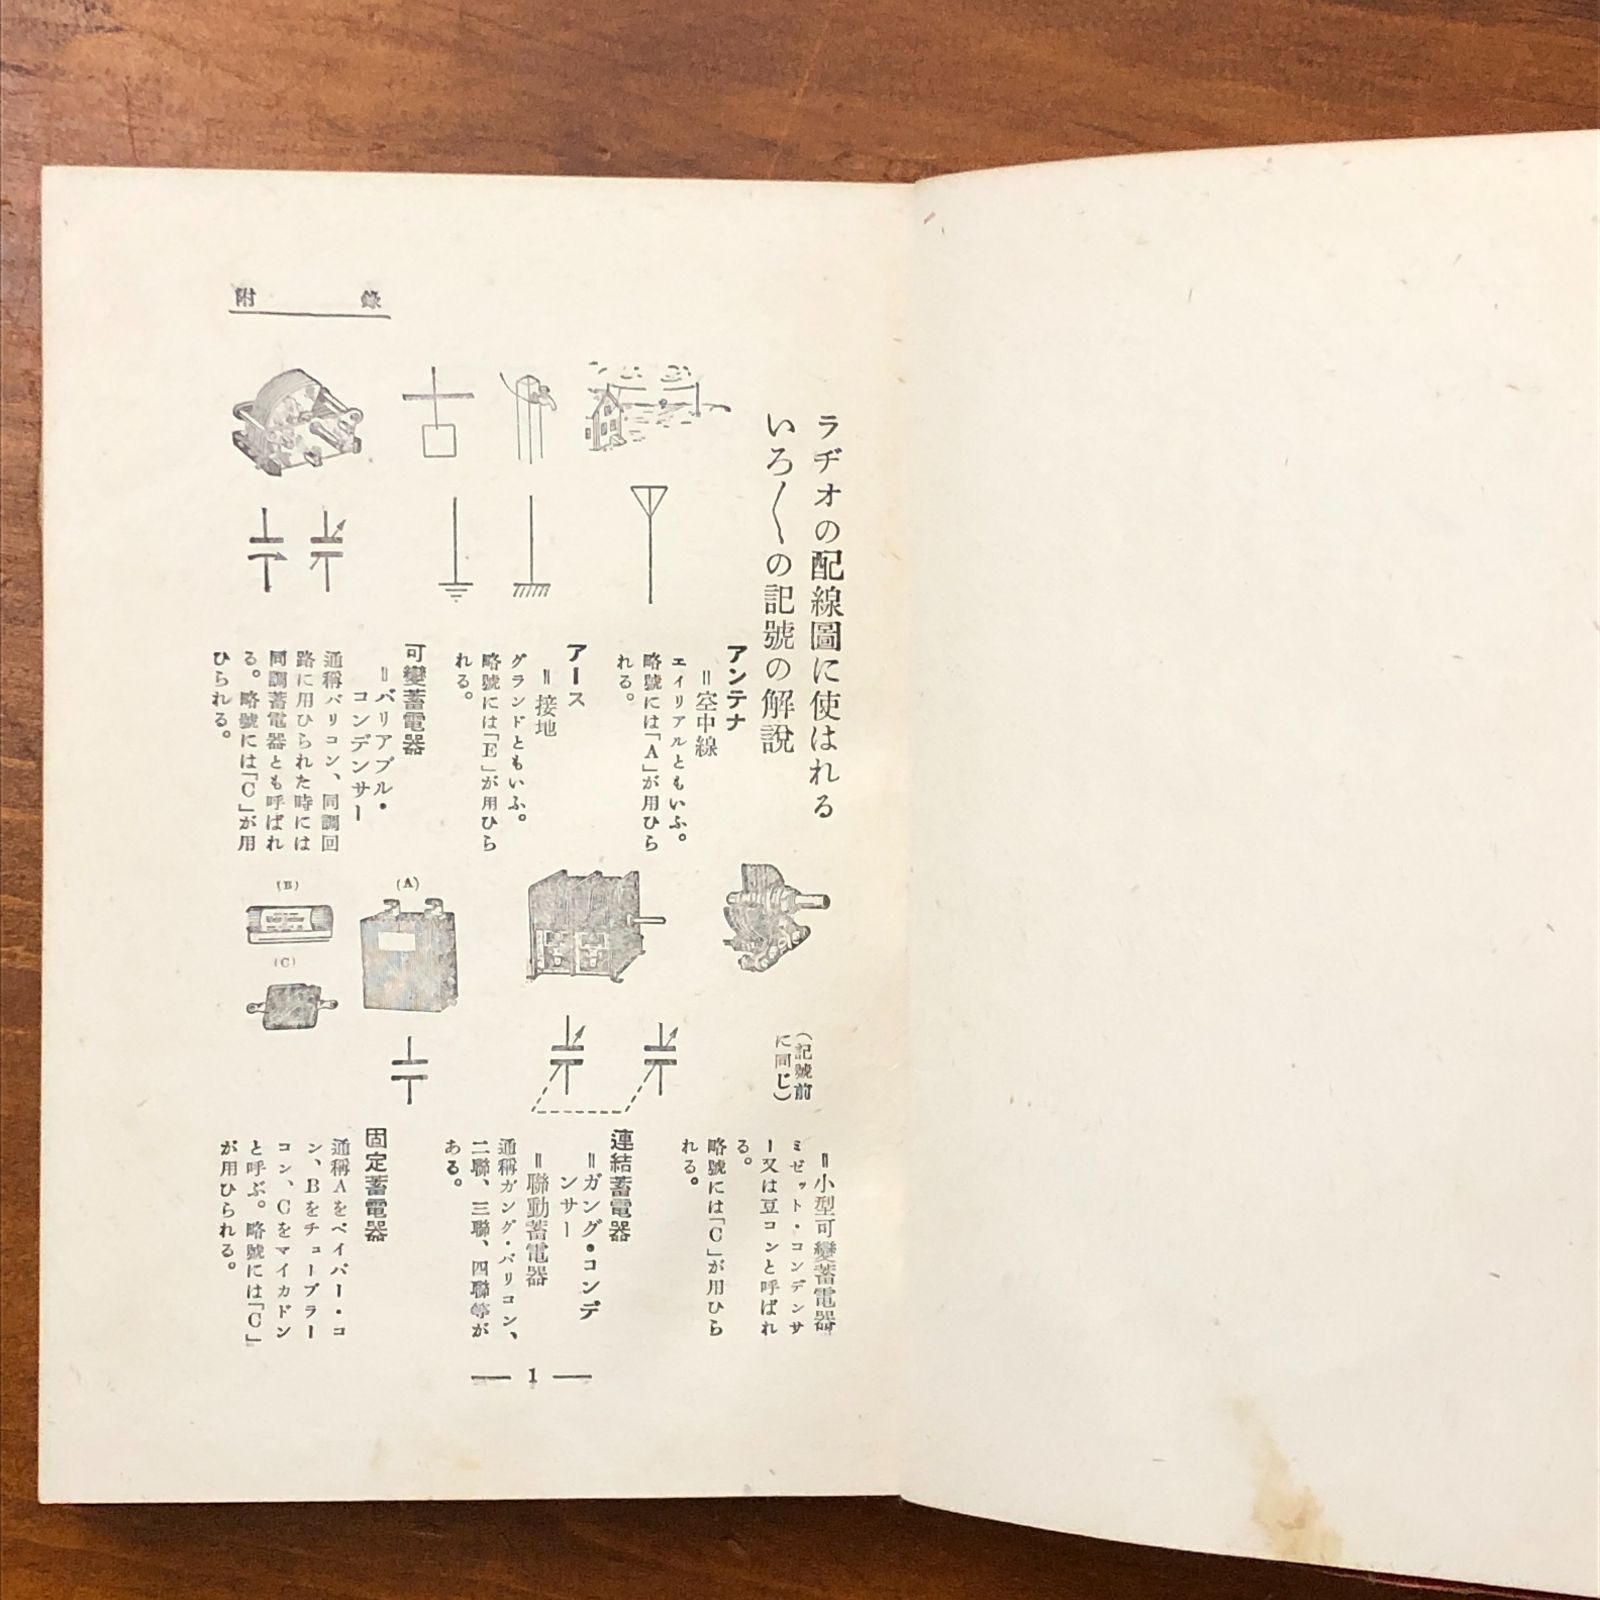 附錄
ラヂオの配線圖に使はれる
いろ〱の記號の解說
アンテナ
＝空中線
エイリアルともいふ。
略號には「A」が用ひら
れる。
アース
＝接地
グランドともいふ。
略號には「E」が用ひら
れる。
可變蓄電器
＝バリアブル・
コンデンサー
通稱バリコン、同調回
路に用ひられた時には
同調蓄電器とも呼ばれ
る。略號には「C」が用
ひられる。
(記號前
に同じ)
＝小型可變蓄電器
ミゼット・コンデンサ
ー又は豆コンと呼ばれ
る。
略號には「C」が用ひら
れる。
連結蓄電器
＝ガング・コンデ
ンサー
＝聯動蓄電器
通稱ガング・バリコン、
二聯、三聯、四聯等が
ある。
(A)
(B)
(C)
固定蓄電器
通稱Aをペイパー・コ
ン、Bをチューブラー
コン、Cをマイカドン
と呼ぶ。略號には「C」
が用ひられる。
— 1 —